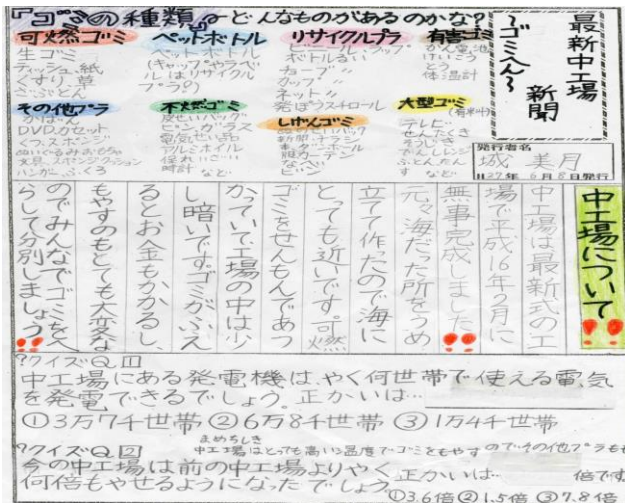 最新中工場
新聞
～ゴミへん～
発行者名
城 美月
H27年6月8日発行
『ゴミの種類』～どんなものがあるのかな？
可燃ゴミ
生ゴミ
ティッシュ、紙
くすり 草
ざぶとん
ペットボトル
ペットボトル
(キャップやラベ
ルはリサイクル
プラ)
リサイクルプラ
ビニール、ラップ
ボトルるい
チューブ〃
カップ〃
ネット〃
発ぽうスチロール
有害ゴミ
かん電池
けいこう
とう
体温計
その他プラ
かばん
DVDカセット
くつ、スポンジ
ぬいぐるみおもちゃ
文具、スポンジクッション
ハンガー、ふくろ
不燃ゴミ
ビン、ガラス
電気せい品
アルミホイル
時計 など
しげんゴミ
新聞、チラシ
なべ
ビン
大型ゴミ
(有料)
テレビ
せんたくき
そうじき
ふとん、たん
す など
中工場について!!
中工場は最新式の工
場で平成16年2月に
無事完成しました!!
元々海だった所をうめ
立てて作ったので海に
とっても近いです。可燃
ゴミをせんもんであつ
かっていて工場の中は少
し暗いです。ゴミがふえ
るとお金もかかるし、
もやすのもとても大変な
のでみんなでゴミをへ
らして分別しましょう!!
?クイズQ.1
中工場にある発電機は、やく何世帯で使える電気
を発電できるでしょう。正かいは…
①3万7千世帯 ②6万8千世帯 ③1万4千世帯
?クイズQ.2
まめちしき
中工場はとっても高い温度でゴミをもやすのでその他プラも
今の中工場は前の中工場よりやく
何倍もやせるようになったでしょう
正かいは… 倍です
①3.6倍②1.5倍③7.8倍